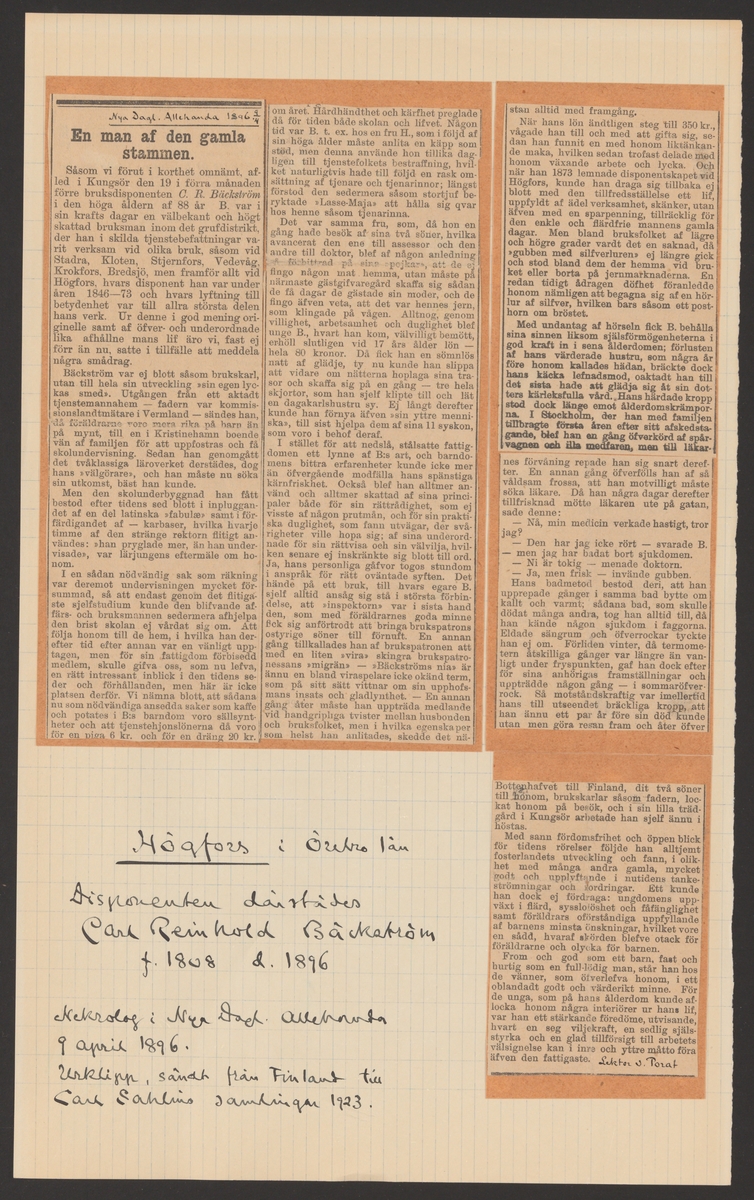 Nya Dagl. Allehanda 1896 9/4
En man af den gamla
stammen.
Såsom vi förut i korthet omnämt, af-
led i Kungsör den 19 i förra månaden
förre bruksdisponenten C. R. Bäckström
i den höga åldern af 88 år B. var i
sin krafts dagar en välbekant och högt
skattad bruksman inom det grufdistrikt,
der han i skilda tjenstebefattningar va-
rit verksam vid olika bruk, såsom vid
Stadra, Kloten, Stjernfors, Vedevåg,
Krokfors, Bredsjö, men framför allt vid
Högfors, hvars disponent han var under
åren 1846—73 och hvars lyftning till
betydenhet var till allra största delen
hans verk. Ur denne i god mening ori-
ginelle samt af öfver- och underordnade
lika afhållne mans lif äro vi, fast ej
förr än nu, satte i tillfälle att meddela
några smådrag.
Bäckström var ej blott såsom brukskarl,
utan till hela sin utveckling »sin egen lyc-
kas smed». Utgången från ett aktadt
tjenstemannahem — fadern var kommis-
sionslandtmätare i Vermland — sändes han,
då föräldrarne voro mera rika på barn än
på mynt, till en i Kristinehamn boende
vän af familjen för att uppfostras och få
skolundervisning. Sedan han genomgått
det tvåklassiga läroverket derstädes, dog
hans »välgörare», och han måste nu söka
sin utkomst, bäst han kunde.
Men den skolunderbyggnad han fått
bestod efter tidens sed blott i inpluggan-
det af en del latinska »fabulæ» samt i för-
färdigandet af — karbaser, hvilka hvarje
timme af den stränge rektorn flitigt an-
vändes: »han pryglade mer, än han under-
visade», var lärjungens eftermäle om ho-
nom.
I en sådan nödvändig sak som räkning
var deremot undervisningen mycket för-
summad, så att endast genom det flitiga-
ste sjelfstudium kunde den blifvande af-
färs- och bruksmannen sedermera afhjelpa
den brist skolan ej vårdat sig om. Att
följa honom till de hem, i hvilka han der-
efter tid efter annan var en vänligt upp-
tagen, men för sin fattigdom förbisedd
medlem, skulle gifva oss, som nu lefva,
en rätt intressant inblick i den tidens se-
der och förhållanden, men här är icke
platsen derför. Vi nämna blott, att sådana
nu som nödvändiga ansedda saker som kaffe
och potates i B:s barndom voro sällsynt-
heter och att tjenstehjonslönerna då voro
för en piga 6 kr. och för en dräng 20 kr.
om året. Hårdhändthet och kärfhet preglade
då för tiden både skolan och lifvet. Någon
tid var B. t. ex. hos en fru H., som i följd af
sin höga ålder måste anlita en käpp som
stöd, men denna använde hon tillika dag-
ligen till tjenstefolkets bestraffning, hvil-
ket naturligtvis hade till följd en rask om-
sättning af tjenare och tjenarinnor; längst
förstod den sedermera såsom stortjuf be-
ryktade »Lasse-Maja» att hålla sig qvar
hos henne såsom tjenarinna.
Det var samma fru, som, då hon en
gång hade besök af sina två söner, hvilka
avancerat den ene till assessor och den
andre till doktor, blef af någon anledning
så förbittrad på sina »pojkar», att de ej
fingo någon mat hemma, utan måste på
närmaste gästgifvaregård skaffa sig sådan
de få dagar de gästade sin moder, och de
fingo äfven veta, att det var hennes jern,
som klingade på vägen. Alltnog, genom
villighet, arbetsamhet och duglighet blef
unge B., hvart han kom, välvilligt bemött,
erhöll slutligen vid 17 års ålder lön —
hela 80 kronor. Då fick han en sömnlös
natt af glädje, ty nu kunde han slippa
att vidare om nätterna hoplaga sina tra-
sor och skaffa sig på en gång — tre hela
skjortor, som han sjelf klipte till och lät
en dagakarlshustru sy. Ej långt derefter
kunde han förnya äfven »sin yttre menni-
ska», till sist hjelpa dem af sina 11 syskon,
som voro i behof deraf.
I stället för att nedslå såsom stålsatte fattig-
domen ett lynne af B:s art, och barndo-
mens bittra erfarenheter kunde icke mer
än öfvergående modfälla hans spänstiga
kärnfriskhet. Också blef han alltmer an-
vänd och alltmer skattad af sina princi-
paler både för sin rättrådighet, som ej
visste af någon prutmån, och för sin prakti-
ska duglighet, som fann utvägar, der svå-
righeter ville hopa sig; af sina underord-
nade för sin rättvisa och sin välvilja, hvil-
ken senare ej inskränkte sig blott till ord.
Ja, hans personliga gåfvor togos stundom
i anspråk för rätt oväntade syften. Det
hände på ett bruk, till hvars egare B.
sjelf alltid ansåg sig stå i största förbin-
delse, att »inspektorn» var i sista hand
den, som med föräldrarnes goda minne
fick sig anförtrodt att bringa brukspatrons
ostyrige söner till förnuft. En annan
gång tillkallades han af brukspatronen att
med en liten »vira» skingra brukspatro-
nessans »migrän» — »Bäckströms nia» är
ännu en bland viraspelare icke okänd term,
som på sitt sätt vittnar om sin upphofs-
mans insats och gladlynthet. — En annan
gång åter måste han uppträda medlande
vid handgripliga tvister mellan husbonden
och bruksfolket, men i hvilka egenskaper
som helst han anlitades, skedde det nä-
stan alltid med framgång.
När hans lön ändtligen steg till 350 kr.,
vågade han till och med att gifta sig, se-
dan han funnit en med honom liktänkan-
de maka, hvilken sedan trofast delade med
honom växande arbete och lycka. Och
när han 1873 lemnade disponentskapet vid
Högfors, kunde han draga sig tillbaka ej
blott med den tillfredsställelse ett lif,
uppfyldt af ädel verksamhet, skänker, utan
äfven med en sparpenning, tillräcklig för
den enkle och flärdfrie mannens gamla
dagar. Men bland bruksfolket af lägre
och högre grader vardt det en saknad, då
»gubben med silfverluren» ej längre gick
och stod bland dem der hemma vid bru-
ket eller borta på jernmarknaderna. En
redan tidigt ådragen döfhet föranledde
honom nämligen att begagna sig af en hör-
lur af silfver, hvilken bars såsom ett post-
horn om bröstet.
Med undantag af hörseln fick B. behålla
sina sinnen liksom själsförmögenheterna i
god kraft in i sena ålderdomen; förlusten
af hans värderade hustru, som några år
före honom kallades hädan, bräckte dock
hans käcka lefnadsmod, oaktadt han till
det sista hade att glädja sig åt sin dot-
ters kärleksfulla vård. Hans härdade kropp
stod dock länge emot ålderdomskrämpor-
na. I Stockholm, der han med familjen
tillbragte första åren efter sitt afskedsta-
gande, blef han en gång öfverkörd af spår-
vagnen och illa medfaren, men till läkar-
nes förvåning repade han sig snart deref-
ter. En annan gång öfverfölls han af så
våldsam frossa, att han motvilligt måste
söka läkare. Då han några dagar derefter
tillfrisknad mötte läkaren ute på gatan,
sade denne:
— Nå, min medicin verkade hastigt, tror
jag?
— Den har jag icke rört — svarade B.
— men jag har badat bort sjukdomen.
— Ni är tokig — menade doktorn.
— Ja, men frisk — invände gubben.
Hans badmetod bestod deri, att han
upprepade gånger i samma bad bytte om
kallt och varmt; sådana bad, som skulle
dödat många andra, tog han alltid till, då
han kände någon sjukdom i faggorna.
Eldade sängrum och öfverrockar tyckte
han ej om. Förliden vinter, då termome-
tern åtskilliga gånger var längre än van-
ligt under fryspunkten, gaf han dock efter
för sina anhörigas framställningar och
uppträdde någon gång — i sommaröfver-
rock. Så motståndskraftig var imellertid
hans till utseendet bräckliga kropp, att
han ännu ett par år före sin död kunde
utan men göra resan fram och åter öfver
Bottenhafvet till Finland, dit två söner
till honom, brukskarlar såsom fadern, loc-
kat honom på besök, och i sin lilla träd-
gård i Kungsör arbetade han sjelf ännu i
höstas.
Med sann fördomsfrihet och öppen blick
för tidens rörelser följde han alltjemt
fosterlandets utveckling och fann, i olik-
het med många andra gamla, mycket
godt och upplyftande i nutidens tanke-
strömningar och fordringar. Ett kunde
han dock ej fördraga: ungdomens upp-
växt i flärd, sysslolöshet och fåfänglighet
samt föräldrars oförståndiga uppfyllande
af barnens minsta önskningar, hvilket vore
en sådd, hvaraf skörden blefve otack för
föräldrarne och olycka för barnen.
From och god som ett barn, fast och
hurtig som en full-lödig man, står han hos
de vänner, som öfverlefva honom, i ett
oblandadt godt och värderikt minne. För
de unga, som på hans ålderdom kunde af-
locka honom några interiörer ur hans lif,
var han ett stärkande föredöme, utvisande,
hvart en seg viljekraft, en sedlig själs-
styrka och en glad tillförsigt till arbetets
välsignelse kan i inre och yttre måtto föra
äfven den fattigaste. Lektor v. Porat
Högfors i Örebro län
Disponenten därstädes
Carl Reinhold Bäckström
f. 1808 d. 1896
Nekrolog i Nya Dagl. Allehanda
9 april 1896.
Urklipp, sändt från Finland till
Carl Sahlins samlingar 1923.